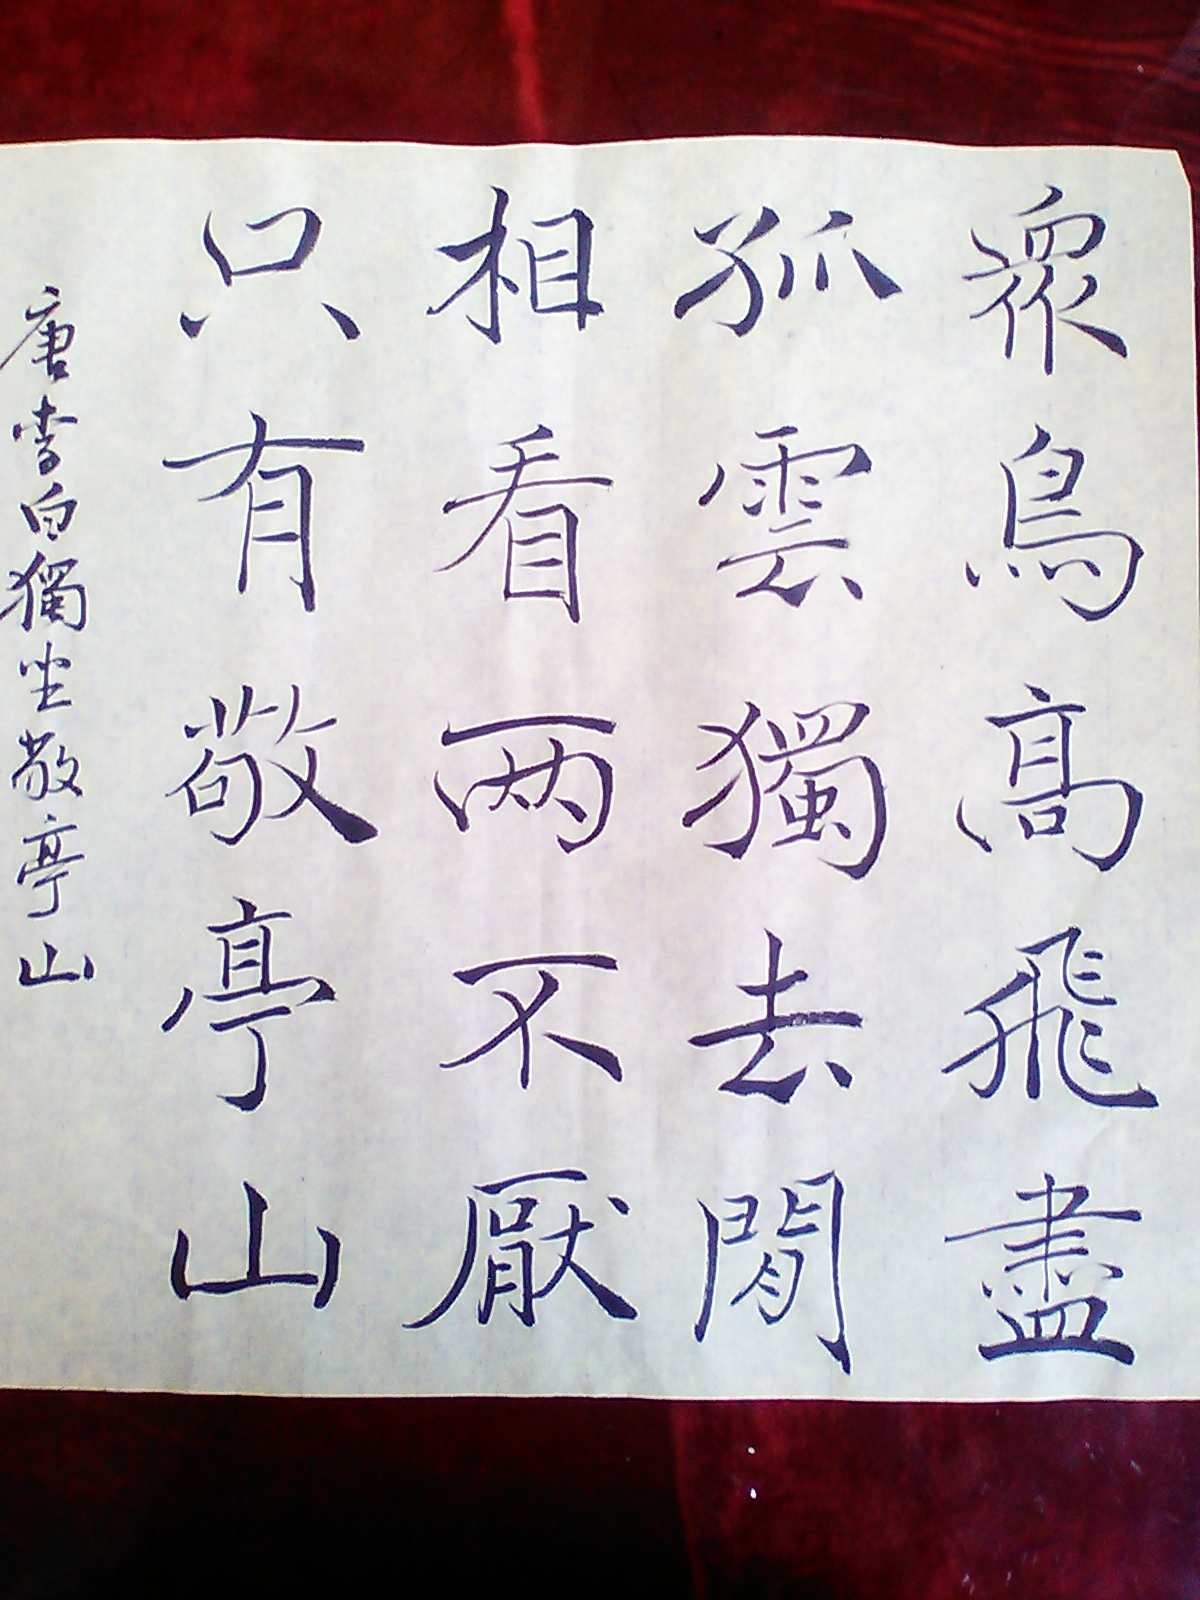 眾鳥高飛盡
孤雲獨去閒
相看两不厭
只有敬亭山
唐李白獨坐敬亭山